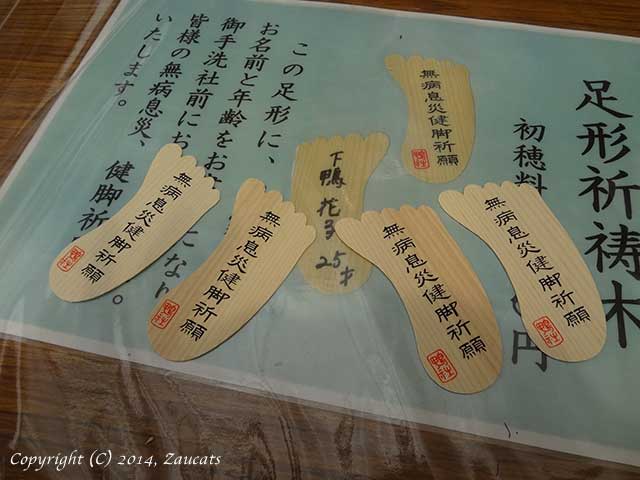 足形祈祷木
初穂料
円
この足形に、
お名前と年齢をお
御手洗社前にお
皆様の無病息災、健脚祈
いたします。
無病息災健脚祈願
鴨社
下鴨花子
25才
無病息災健脚祈願
鴨社
無病息災健脚祈願
鴨社
無病息災健脚祈願
鴨社
無病息災健脚祈願
鴨社
Copyright (C) 2014, Zaucats